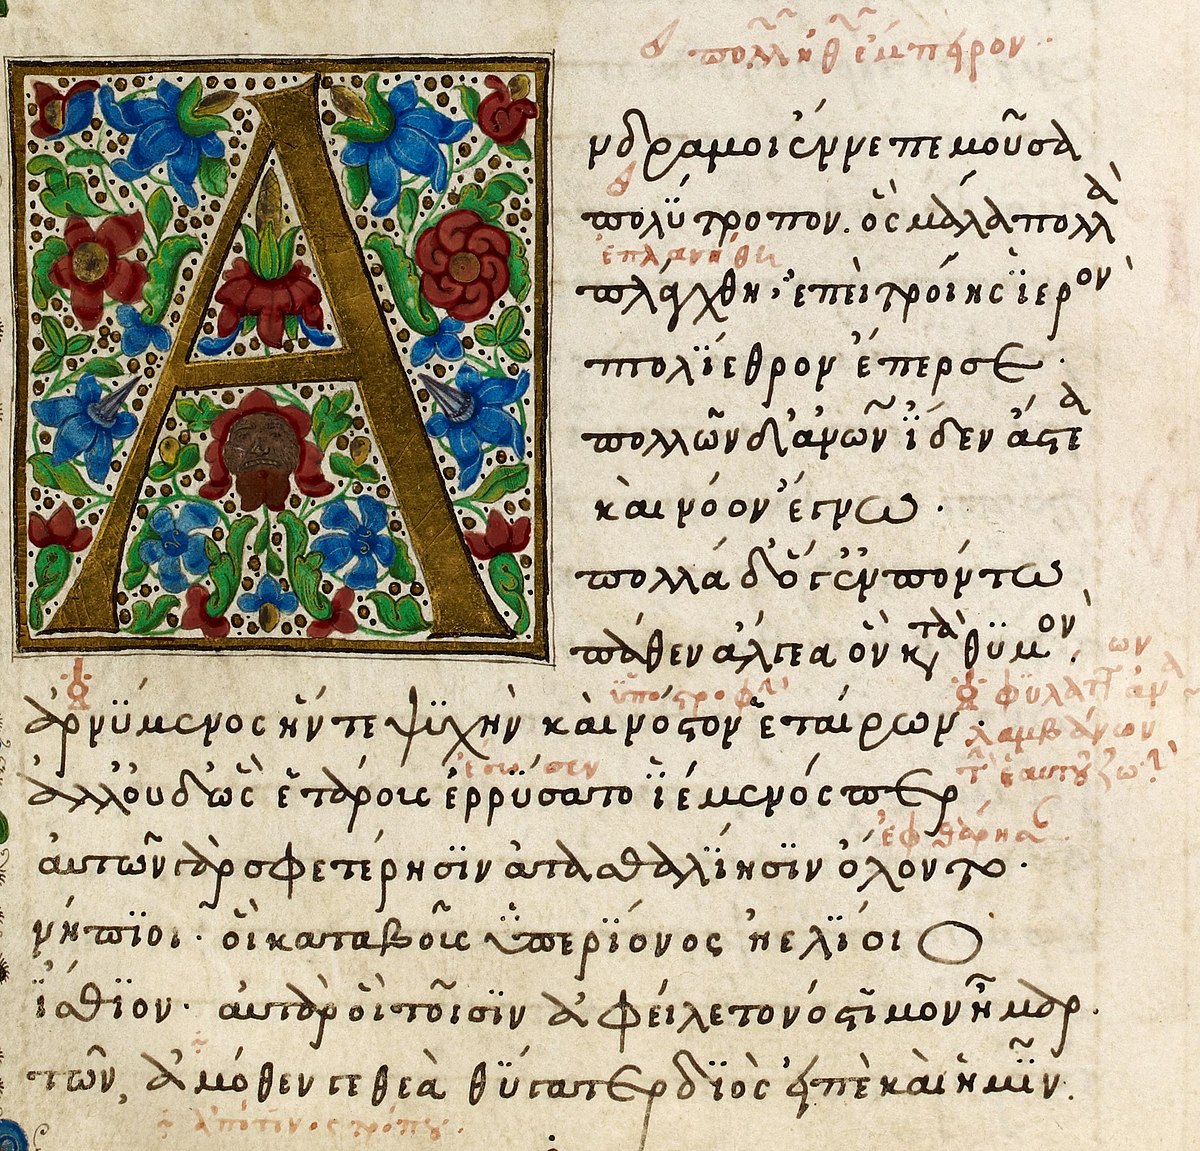 πολλ ἔμπηρον
Α
νδρα μοι ἔννεπε μοῦσα
πολύτροπον. ὃς μάλα πολλὰ
ἐπλανήθη
πλάγχθη, ἐπεὶ τροίης ἱερὸν
πτολίεθρον ἔπερσε.
πολλῶν δ' ἀνθρώπων ἴδεν ἄστεα
καὶ νόον ἔγνω.
πολλὰ δ' ὅγ' ἐν πόντω
πάθεν ἄλγεα ὃν κατὰ θυμὸν.
ὑποστροφὴν
ἀρνύμενος ἥν τε ψυχὴν καὶ νόστον ἑταίρων.
λαμβάνων
ἔσωσεν
ἀλλ' οὐδ' ὣς ἑτάροις ἐρρύσατο ἱέμενός περ
ἐφθάρησαν
αὐτῶν γὰρ σφετέρησιν ἀτασθαλίησιν ὄλοντο.
νήπιοι. οἳ κατὰ βοῦς ὑπερίονος ἠελίοιο
ἤσθιον. αὐτὰρ ὃ τοῖσιν ἀφείλετο νόστιμον ἦμαρ.
τῶν, ἀμόθεν γε θεὰ θύγατερ διὸς εἰπὲ καὶ ἡμῖν.
ἀπό τινος τρόπου.